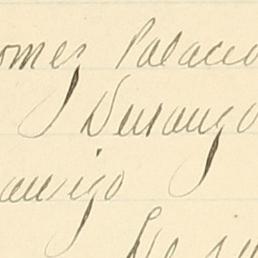 omez Palacio
Durango
amigo